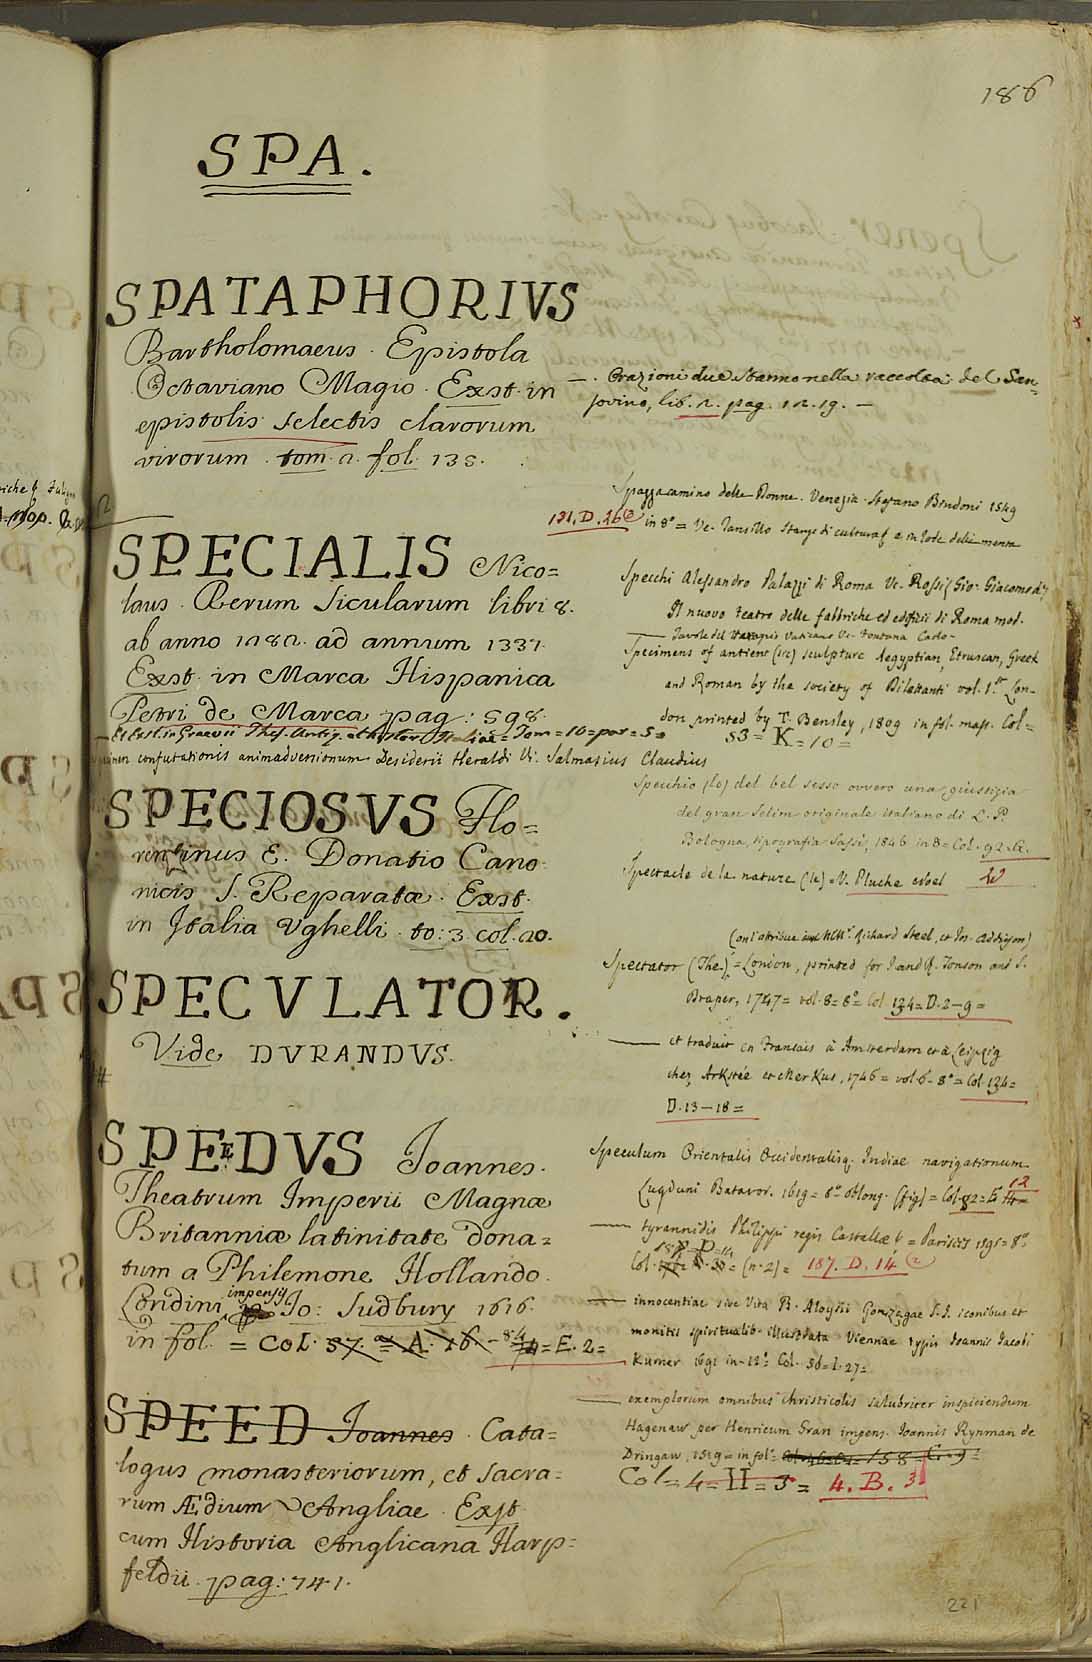 186
SPA.
SPATAPHORIVS
Bartholomaeus. Epistola
Octaviano Magio. Exst. in
epistolis selectis clarorum
virorum. tom. 2. fol. 135.
SPECIALIS Nico=
laus. Rerum Sicularum libri 8.
ab anno 1282. ad annum 1337.
Exst. in Marca Hispanica
Petri de Marca pag: 598.
Et Exst. in Graevii Thes. Antiq. et histor. Italiae = Tom = 10 = par = 5 =
confutationis animadversionum Desiderii Heraldi Vi. Salmasius Claudius
SPECIOSVS Flo=
rentinus E. Donatio Cano
nicis S. Reparatæ. Exst.
in Italia Vghelli. to: 3. col. 20.
SPECVLATOR.
Vide DVRANDVS.
SPEEDVS Joannes.
Theatrum Imperii Magnæ
Britanniæ latinitate dona=
tum a Philemone Hollando.
Londini impensis Jo: Sudbury 1616.
in fol. = Col. 57. = A. 16 - 84 = E. 2 =
SPEED Joannes. Cata=
logus monasteriorum, et sacra=
rum Ædium Angliae. Exst.
cum Historia Anglicana Harp=
feldii. pag: 741.
—. Orazioni due stanno nella raccolta del San=
sovino, lib. 2. pag. 12. 19. —
Spazzacamino delle Donne. Venezia. Stefano Bindoni 1549
131. D. 26 in 8° = Ve. Tansillo Stanze di cultura e in lode della menta
Specchi Alessandro Palazzi di Roma Ve. Rossi (Gio. Giacomo de)
Il nuovo teatro delle fabbriche ed edifizii di Roma mod.
— Tavole del Vaticano Ve. Fontana Carlo -
Specimens of antient (sic) sculpture Aegyptian, Etruscan, Greek
and Roman by the society of Dilettanti vol. 1.st Lon-
don printed by T. Bensley, 1809 in fol. mass. Col =
53 = K = 10 =
Specchio (lo) del bel sesso ovvero una giustizia
del gran Selim originale italiano di L. P.
Bologna, tipografia Sassi, 1846 in 8 = Col. 92. A.
Spectacle de la nature (le) V. Pluche
Richard Steel, et
Spectator (The) = London, printed for J and R. Tonson and S.
Draper, 1747 = vol. 8 = 8° = Col 134 = D. 2 — 9 =
— et traduit en Francais à Amsterdam et à Leipzig
chez Arkstée et Merkus, 1746 = vol 6 - 8° = Col. 134 =
D. 13 — 18 =
Speculum Orientalis Occidentalisq. Indiae navigationum
Lugduni Batavor. 1619 = 8° oblong. (fig) = Col. 82 = E 12
— tyrannidis Philippi regis Castellae = Parisiis 1595 = 8°
Col. = (n. 2) = 187. D. 14
— innocentiae sive Vita B. Aloysii Gonzagae S. J. iconibus et
monitis spiritualib. illustrata Viennae typis Joannis Jacobi
Kurner 1691 in - 12° Col. 56 = I. 27 =
— exemplorum omnibus christicolis salubriter inspiciendum
Hagenaw per Henricum Gran impens. Joannis Rynman de
Oringaw, 1519 = in fol°
Col = 4 = II = 3 = 4. B. 3
221